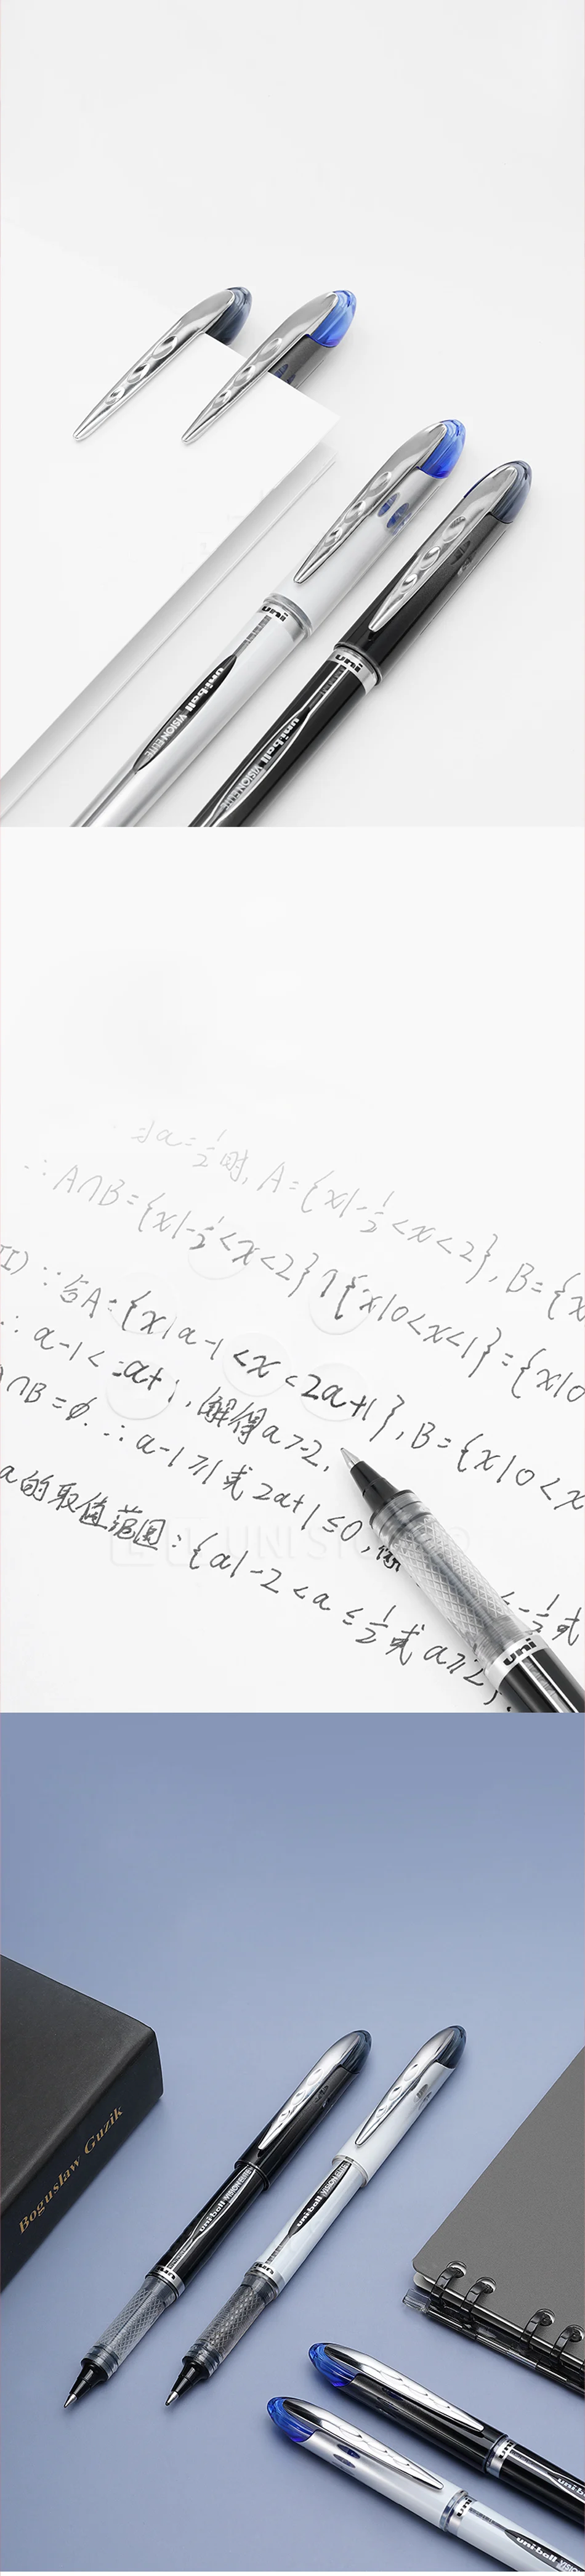 uni
uni-ball VISION ELITE
uni
uni-ball VISION ELITE
当a=1/2时, A={x|-1/2<x<2}, B={x
∴A∩B={x|-1/2<x<2}∩{x|0<x<1}={x|0
II) ∵ A={x|a-1<x<2a+1}, B={x|0<x
∴a-1<2a+1, 解得a>-2,
∩B=ϕ. ∴a-1≥1或2a+1≤0,
a的取值范围:{a|-2<a≤-1/2或a≥2},
UNI STUDIO
uni
Boguslaw Guzik
uni-ball VISION ELITE
uni
uni-ball VISION ELITE
uni
uni
uni-ball
uni
uni-ball